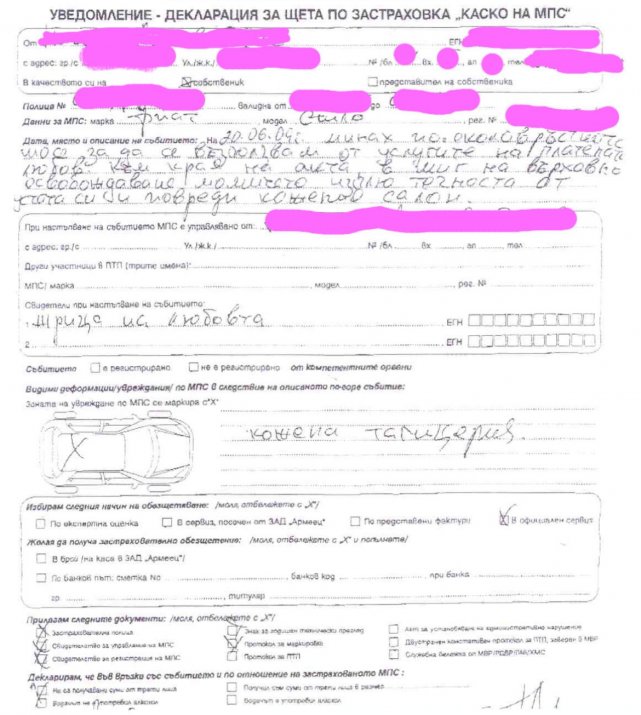 УВЕДОМЛЕНИЕ - ДЕКЛАРАЦИЯ ЗА ЩЕТА ПО ЗАСТРАХОВКА „КАСКО НА МПС“
От ЕГН
с адрес: гр./с Ул./ж.к./ №/бл. Вх. ап тел
В качеството си на собственик представител на собственика
Полица № валидна от до
Данни за МПС: марка Фиат модел Сиена рег. №
Дата, място и описание на събитието: На 20.06.09г. минах на околовръстното
шосе за да се възползвам от услугите на платената
любов. Към края на акта в миг на върховно
освобождаване, момичето изпълю течността от
устата си и повреди кожения салон.
При настъпване на събитието МПС е управлявано от:
с адрес: гр./с Ул./ж.к./ №/бл. вх ап тел
Други участници в ПТП (трите имена):
МПС/ марка модел рег. №
Свидетели при настъпване на събитието:
1 Жрица на любовта ЕГН
2 ЕГН
Събитието е регистрирано не е регистрирано от компетентните органи
Видими деформации/увреждания/ по МПС в следствие на описаното по-горе събитие:
Зоната на увреждане по МПС се маркира с"X"
X кожена тапицерия
Избирам следния начин на обезщетяване: /моля, отбележете с „X“/
По експертна оценка В сервиз, посочен от ЗАД „Армеец“ По представени фактури В официален сервиз
Желая да получа застрахователно обезщетение: /моля, отбележете с „X“ и попълнете/
В брой /на каса в ЗАД „Армеец“/
По банков път: сметка No банков код при банка
гр. титуляр
Прилагам следните документи: /моля, отбележете с „X“/
Застрахователна полица Знак за годишен технически преглед Акт за установяване на административно нарушение
Свидетелство за управление на МПС Протокол за маркировка Двустранен констативен протокол за ПТП, заверен в МВР
Свидетелство за регистрация на МПС Протокол за ПТП Служебна бележка от МВР
Декларирам, че във връзка със събитието и по отношение на застрахованото МПС :
Не са получавани суми от трети лица Получих съм суми от трети лица в размер
Водачът не употребил алкохол Водачът е употребил алкохол